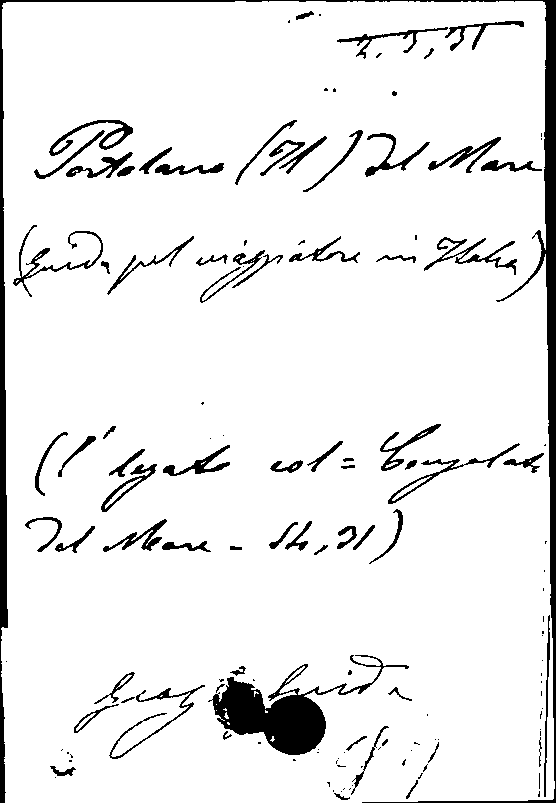 2.3,31
Portolano (Il) del Mare
(Guida pel viaggiatore in Italia)
(È legato col = Consolato
del Mare - 
Geog Guida